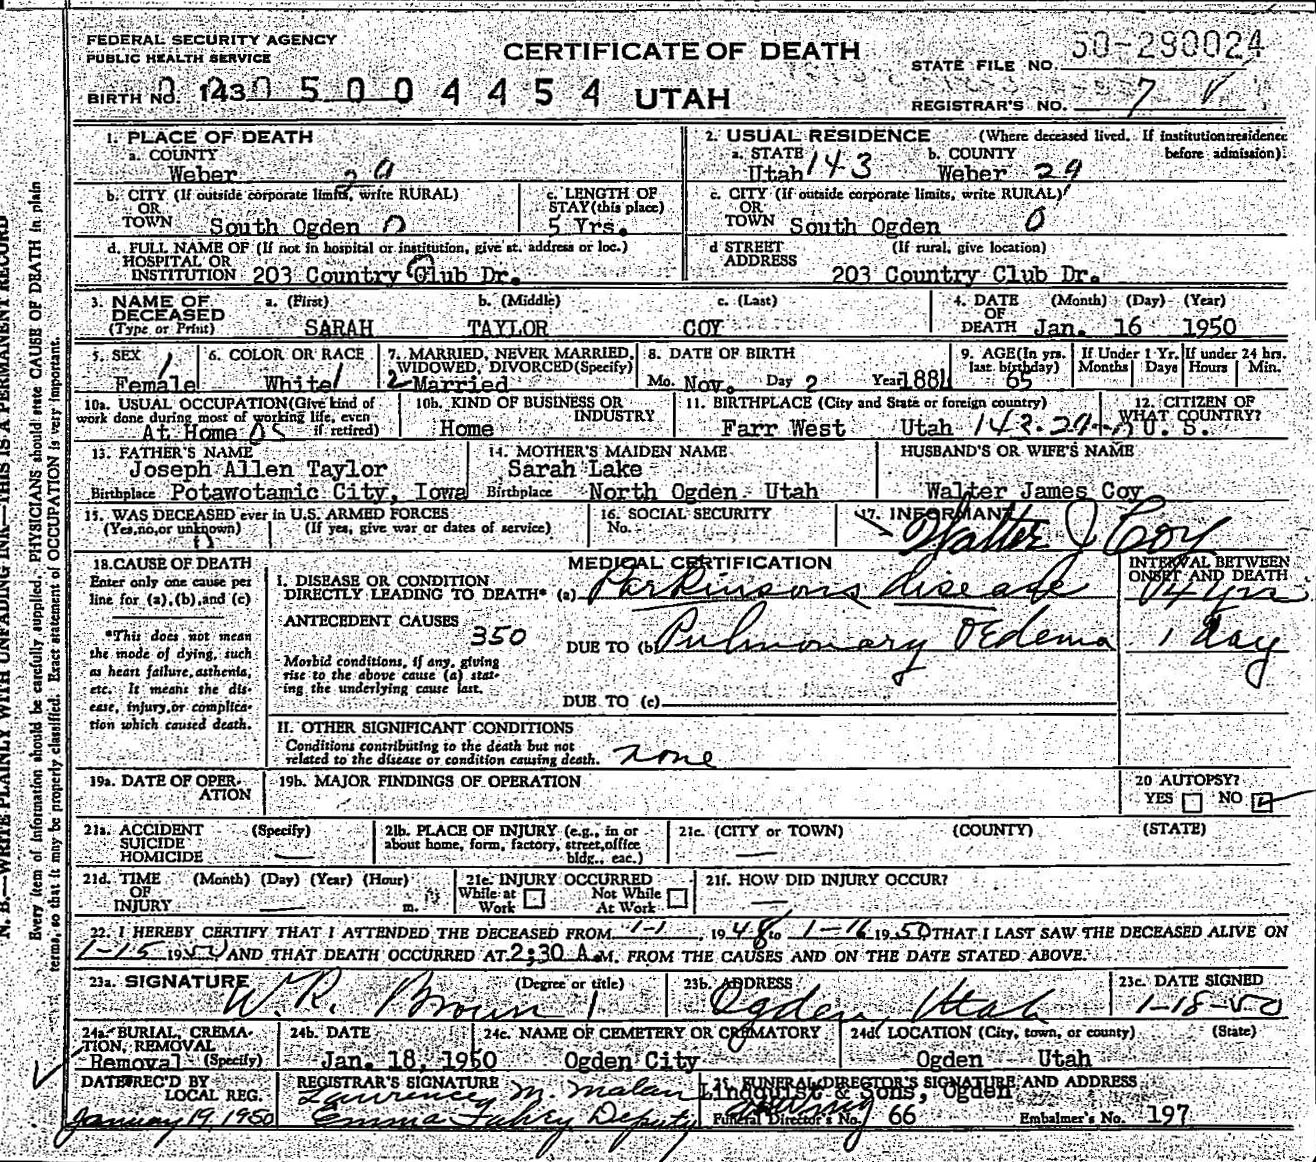 FEDERAL SECURITY AGENCY
PUBLIC HEALTH SERVICE
CERTIFICATE OF DEATH
STATE FILE NO. 50-290024
BIRTH NO. 143 0 5 0 0 4 4 5 4 UTAH
REGISTRAR'S NO. 7
1. PLACE OF DEATH
a. COUNTY
Weber
2. USUAL RESIDENCE (Where deceased lived. If institution: residence before admission).
a. STATE Utah 143 b. COUNTY Weber 29
b. CITY (If outside corporate limits, write RURAL)
OR
TOWN South Ogden 0
c. LENGTH OF
STAY (this place)
5 Yrs.
c. CITY (If outside corporate limits, write RURAL)
OR
TOWN South Ogden 0
d. FULL NAME OF (If not in hospital or institution, give st. address or loc.)
HOSPITAL OR
INSTITUTION 203 Country Club Dr.
d STREET (If rural, give location)
ADDRESS
203 Country Club Dr.
3. NAME OF DECEASED (Type or Print)
a. (First) b. (Middle) c. (Last)
SARAH TAYLOR COY
4. DATE OF DEATH (Month) (Day) (Year)
Jan. 16 1950
5. SEX
Female 1
6. COLOR OR RACE
White 1
7. MARRIED, NEVER MARRIED, WIDOWED, DIVORCED (Specify)
2 Married
8. DATE OF BIRTH
Mo. Nov. Day 2 Year 1884
9. AGE (In yrs. last birthday)
65
If Under 1 Yr. Months Days
If under 24 hrs. Hours Min.
10a. USUAL OCCUPATION (Give kind of work done during most of working life, even if retired)
At Home
10b. KIND OF BUSINESS OR INDUSTRY
Home
11. BIRTHPLACE (City and State or foreign country)
Farr West Utah
12. CITIZEN OF WHAT COUNTRY?
U. S.
13. FATHER'S NAME
Joseph Allen Taylor
Birthplace Potawotamic City, Iowa
14. MOTHER'S MAIDEN NAME
Sarah Lake
Birthplace North Ogden - Utah
HUSBAND'S OR WIFE'S NAME
Walter James Coy
15. WAS DECEASED ever in U.S. ARMED FORCES
(Yes, no, or unknown) (If yes, give war or dates of service)
16. SOCIAL SECURITY
No.
17. INFORMANT
Walter J Coy
18. CAUSE OF DEATH
Enter only one cause per line for (a), (b), and (c)
*This does not mean the mode of dying, such as heart failure, asthenia, etc. It means the disease, injury, or complication which caused death.
MEDICAL CERTIFICATION
INTERVAL BETWEEN ONSET AND DEATH
I. DISEASE OR CONDITION
DIRECTLY LEADING TO DEATH* (a) Parkinsons disease
ANTECEDENT CAUSES
350
DUE TO (b) Pulmonary OEdema 1 day
Morbid conditions, if any, giving rise to the above cause (a) stating the underlying cause last.
DUE TO (c)
II. OTHER SIGNIFICANT CONDITIONS
Conditions contributing to the death but not related to the disease or condition causing death. none
19a. DATE OF OPERATION
19b. MAJOR FINDINGS OF OPERATION
20 AUTOPSY?
YES NO
21a. ACCIDENT SUICIDE HOMICIDE (Specify)
21b. PLACE OF INJURY (e.g., in or about home, form, factory, street, office bldg., eac.)
21c. (CITY or TOWN) (COUNTY) (STATE)
21d. TIME OF INJURY (Month) (Day) (Year) (Hour) m.
21e. INJURY OCCURRED
While at Work Not While At Work
21f. HOW DID INJURY OCCUR?
22. I HEREBY CERTIFY THAT I ATTENDED THE DECEASED FROM 1-1, 1948 to 1-16 1950, THAT I LAST SAW THE DECEASED ALIVE ON
1-15 1950 AND THAT DEATH OCCURRED AT 2:30 A.M. FROM THE CAUSES AND ON THE DATE STATED ABOVE.
23a. SIGNATURE (Degree or title)
W. R. Brown
23b. ADDRESS
Ogden, Utah
23c. DATE SIGNED
1-18-50
24a. BURIAL, CREMATION, REMOVAL (Specify)
Removal
24b. DATE
Jan. 18, 1950
24c. NAME OF CEMETERY OR CREMATORY
Ogden City
24d. LOCATION (City, town, or county) (State)
Ogden Utah
DATE REC'D BY LOCAL REG.
January 19, 1950
REGISTRAR'S SIGNATURE
Lawrence M. Malan
Emma Fahey Deputy
25. FUNERAL DIRECTOR'S SIGNATURE AND ADDRESS
Lindquist & Sons, Ogden
Funeral Director's No. 66 Embalmer's No. 197
N. B.—WRITE PLAINLY WITH UNFADING INK—THIS IS A PERMANENT RECORD
Every item of information should be carefully supplied. PHYSICIANS should state CAUSE OF DEATH in plain
terms, so that it may be properly classified. Exact statement of OCCUPATION is very important.